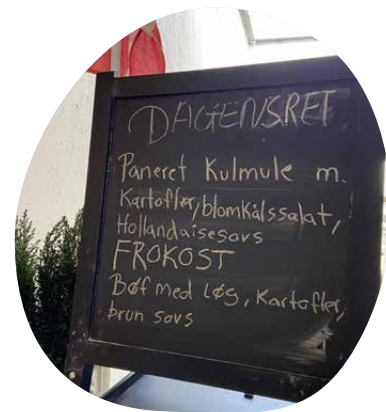 DAGENSRET
Paneret Kulmule m.
Kartofler, blomkålssalat,
Hollandaisesovs
FROKOST
Bøf med Løg, Kartofler,
brun sovs